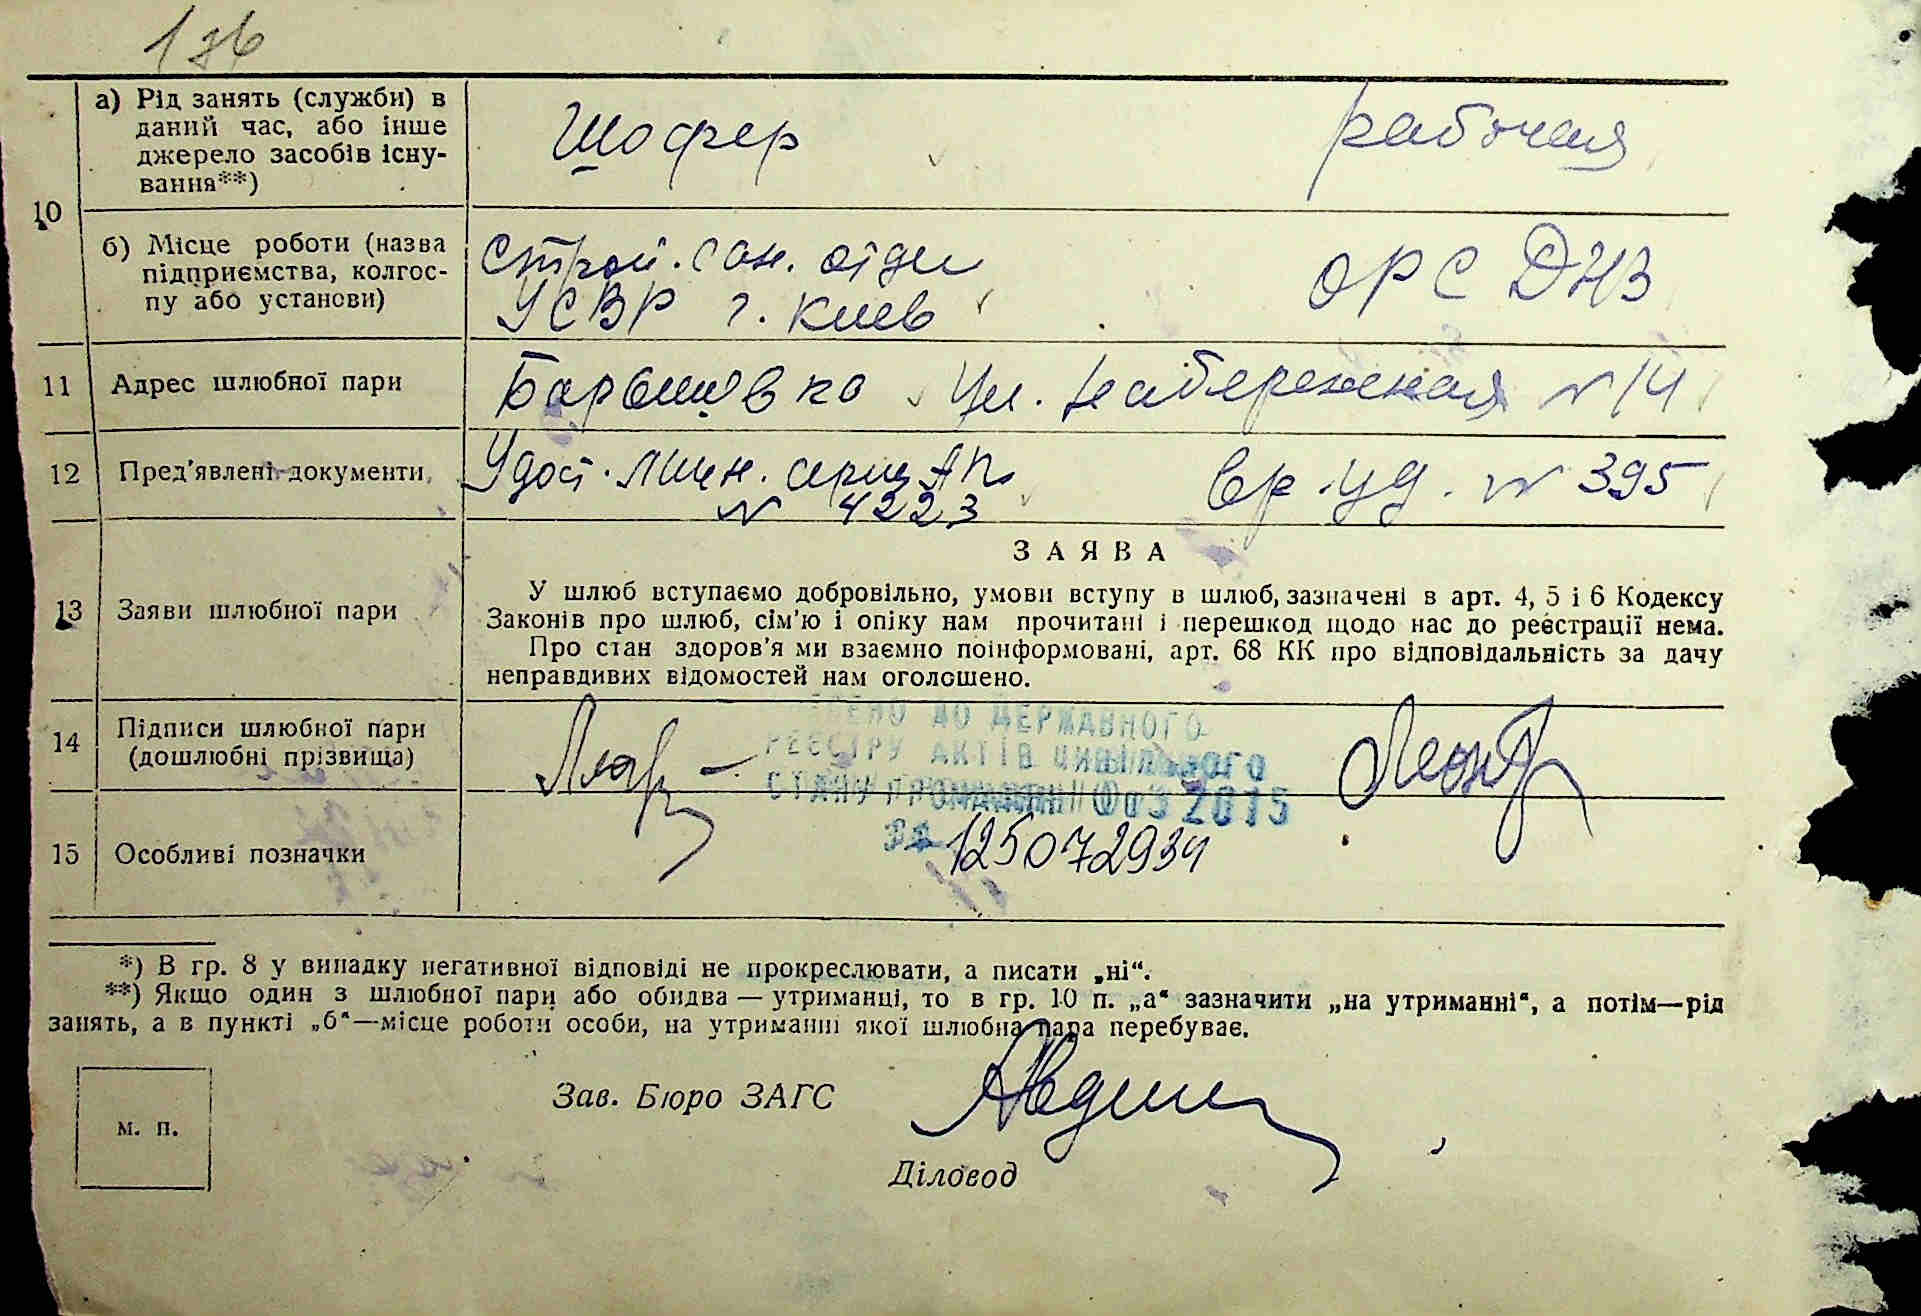 а) Рід занять (служби) в
даний час, або інше
джерело засобів існу-
вання**)
Шофер
рабочая
10
б) Місце роботи (назва
підприємства, колгос-
пу або установи)
Строй. сан. отдел
УСВР г. Киев
ОРС ДНЗ
11 Адрес шлюбної пари
ул. Набережная N 14
12 Пред'явлені документи
Удост. личн. серия АП
N 4223
вр. уд. N 395
13 Заяви шлюбної пари
ЗАЯВА
У шлюб вступаємо добровільно, умови вступу в шлюб, зазначені в арт. 4, 5 і 6 Кодексу
Законів про шлюб, сім'ю і опіку нам прочитані і перешкод щодо нас до реєстрації нема.
Про стан здоров'я ми взаємно поінформовані, арт. 68 КК про відповідальність за дачу
неправдивих відомостей нам оголошено.
14 Підписи шлюбної пари
(дошлюбні прізвища)
ДО ДЕРЖАВНОГО
РЕЄСТРУ АКТІВ ЦИВІЛЬНОГО
СТАНУ ГРОМАДЯН 2015
За 125072934
15 Особливі позначки
*) В гр. 8 у випадку негативної відповіді не прокреслювати, а писати „ні“.
**) Якщо один з шлюбної пари або обидва — утриманці, то в гр. 10 п. „а“ зазначити „на утриманні“, а потім—рід
занять, а в пункті „б“—місце роботи особи, на утриманні якої шлюбна пара перебуває.
Зав. Бюро ЗАГС
м. п.
Діловод